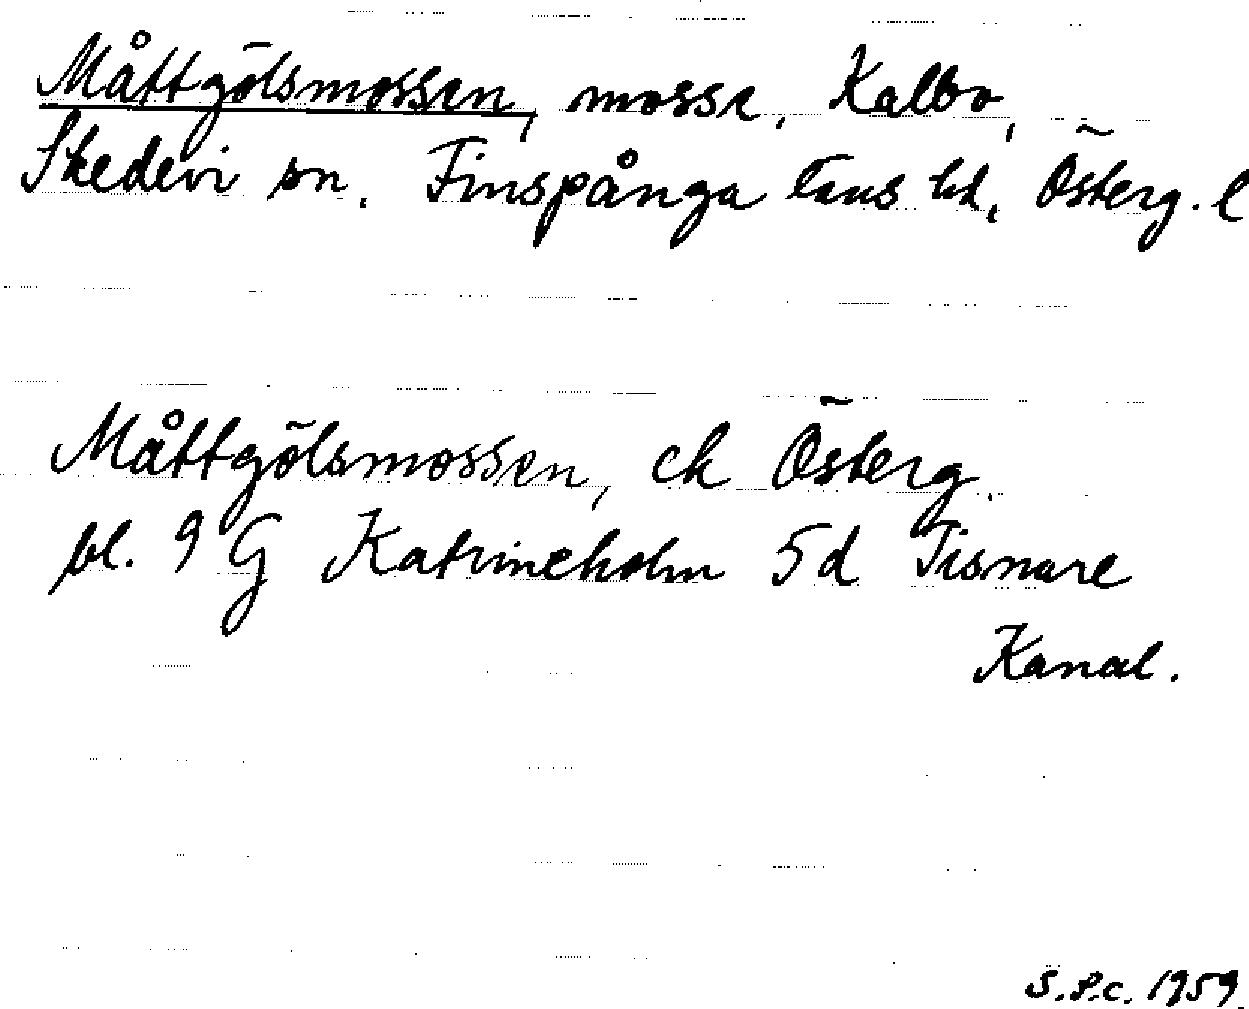 Måttgölsmossen, mosse, Kalbo,
Skedevi sn. Finspånga läns hd, Österg. l
Måttgölsmossen, ek Österg.
bl. 9 G Katrineholm 5d Tisnare
Kanal.
S.P.c. 1959